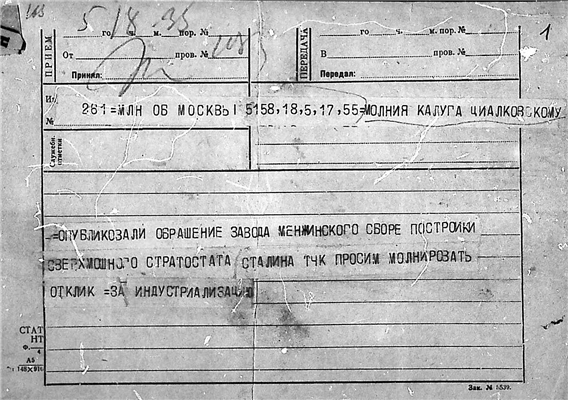 163
5 18-35
1
ПРИЕМ
го ч. м. пор. №
От пров. №
Принял:
ПЕРЕДАЧА
го ч. м. пор. №
В пров. №
Передал:
Из 261=МЛН ОБ МОСКВЫ 5158,18,5,17,55=МОЛНИЯ КАЛУГА ЦИАЛКОВСКОМУ
№
Служебн. отметки
=ОПУБЛИКОЗАЛИ ОБРАШЕНИЕ ЗАВОДА МЕНЖИНСКОГО СБОРЕ ПОСТРОЙКИ
СВЕРХМОШНОГО СТРАТОСТАТА СТАЛИНА ТЧК ПРОСИМ МОЛНИРОВАТЬ
ОТКЛИК =ЗА ИНДУСТРИАЛИЗАЦИЮ
СТАТ
НТ
Ф. 4
А5
148×210
Зак. № 5539.